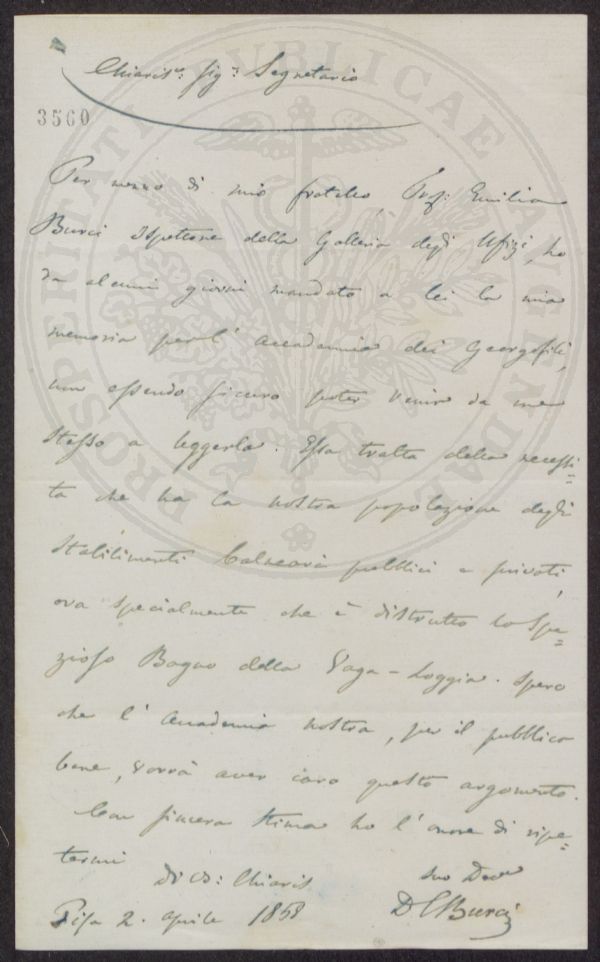 Chiaris.º Sig.r Segretario
3560
Per mezzo di mio fratello, Prof: Emilio
Burci Ispettore della Galleria degli Ufizj, ho
da alcuni giorni mandato a lei la mia
memoria per l'Accademia dei Georgofili,
non essendo sicuro poter venire da me
stesso a leggerla. Essa tratta della necessi=
tà che ha la nostra popolazione degli
Stabilimenti Balnearj pubblici e privati,
ora specialmente che è distrutto lo Spa=
zioso Bagno della Vaga-Loggia. Spero
che l'Accademia nostra, per il pubblico
bene, vorrà aver caro questo argomento.
Con sincera stima ho l'onore di ripe=
termi
Di VS: Chiaris
Suo Devo
Pisa 2. Aprile 1858
D C Burci
PROSPERITATI PUBLICAE AUGENDAE